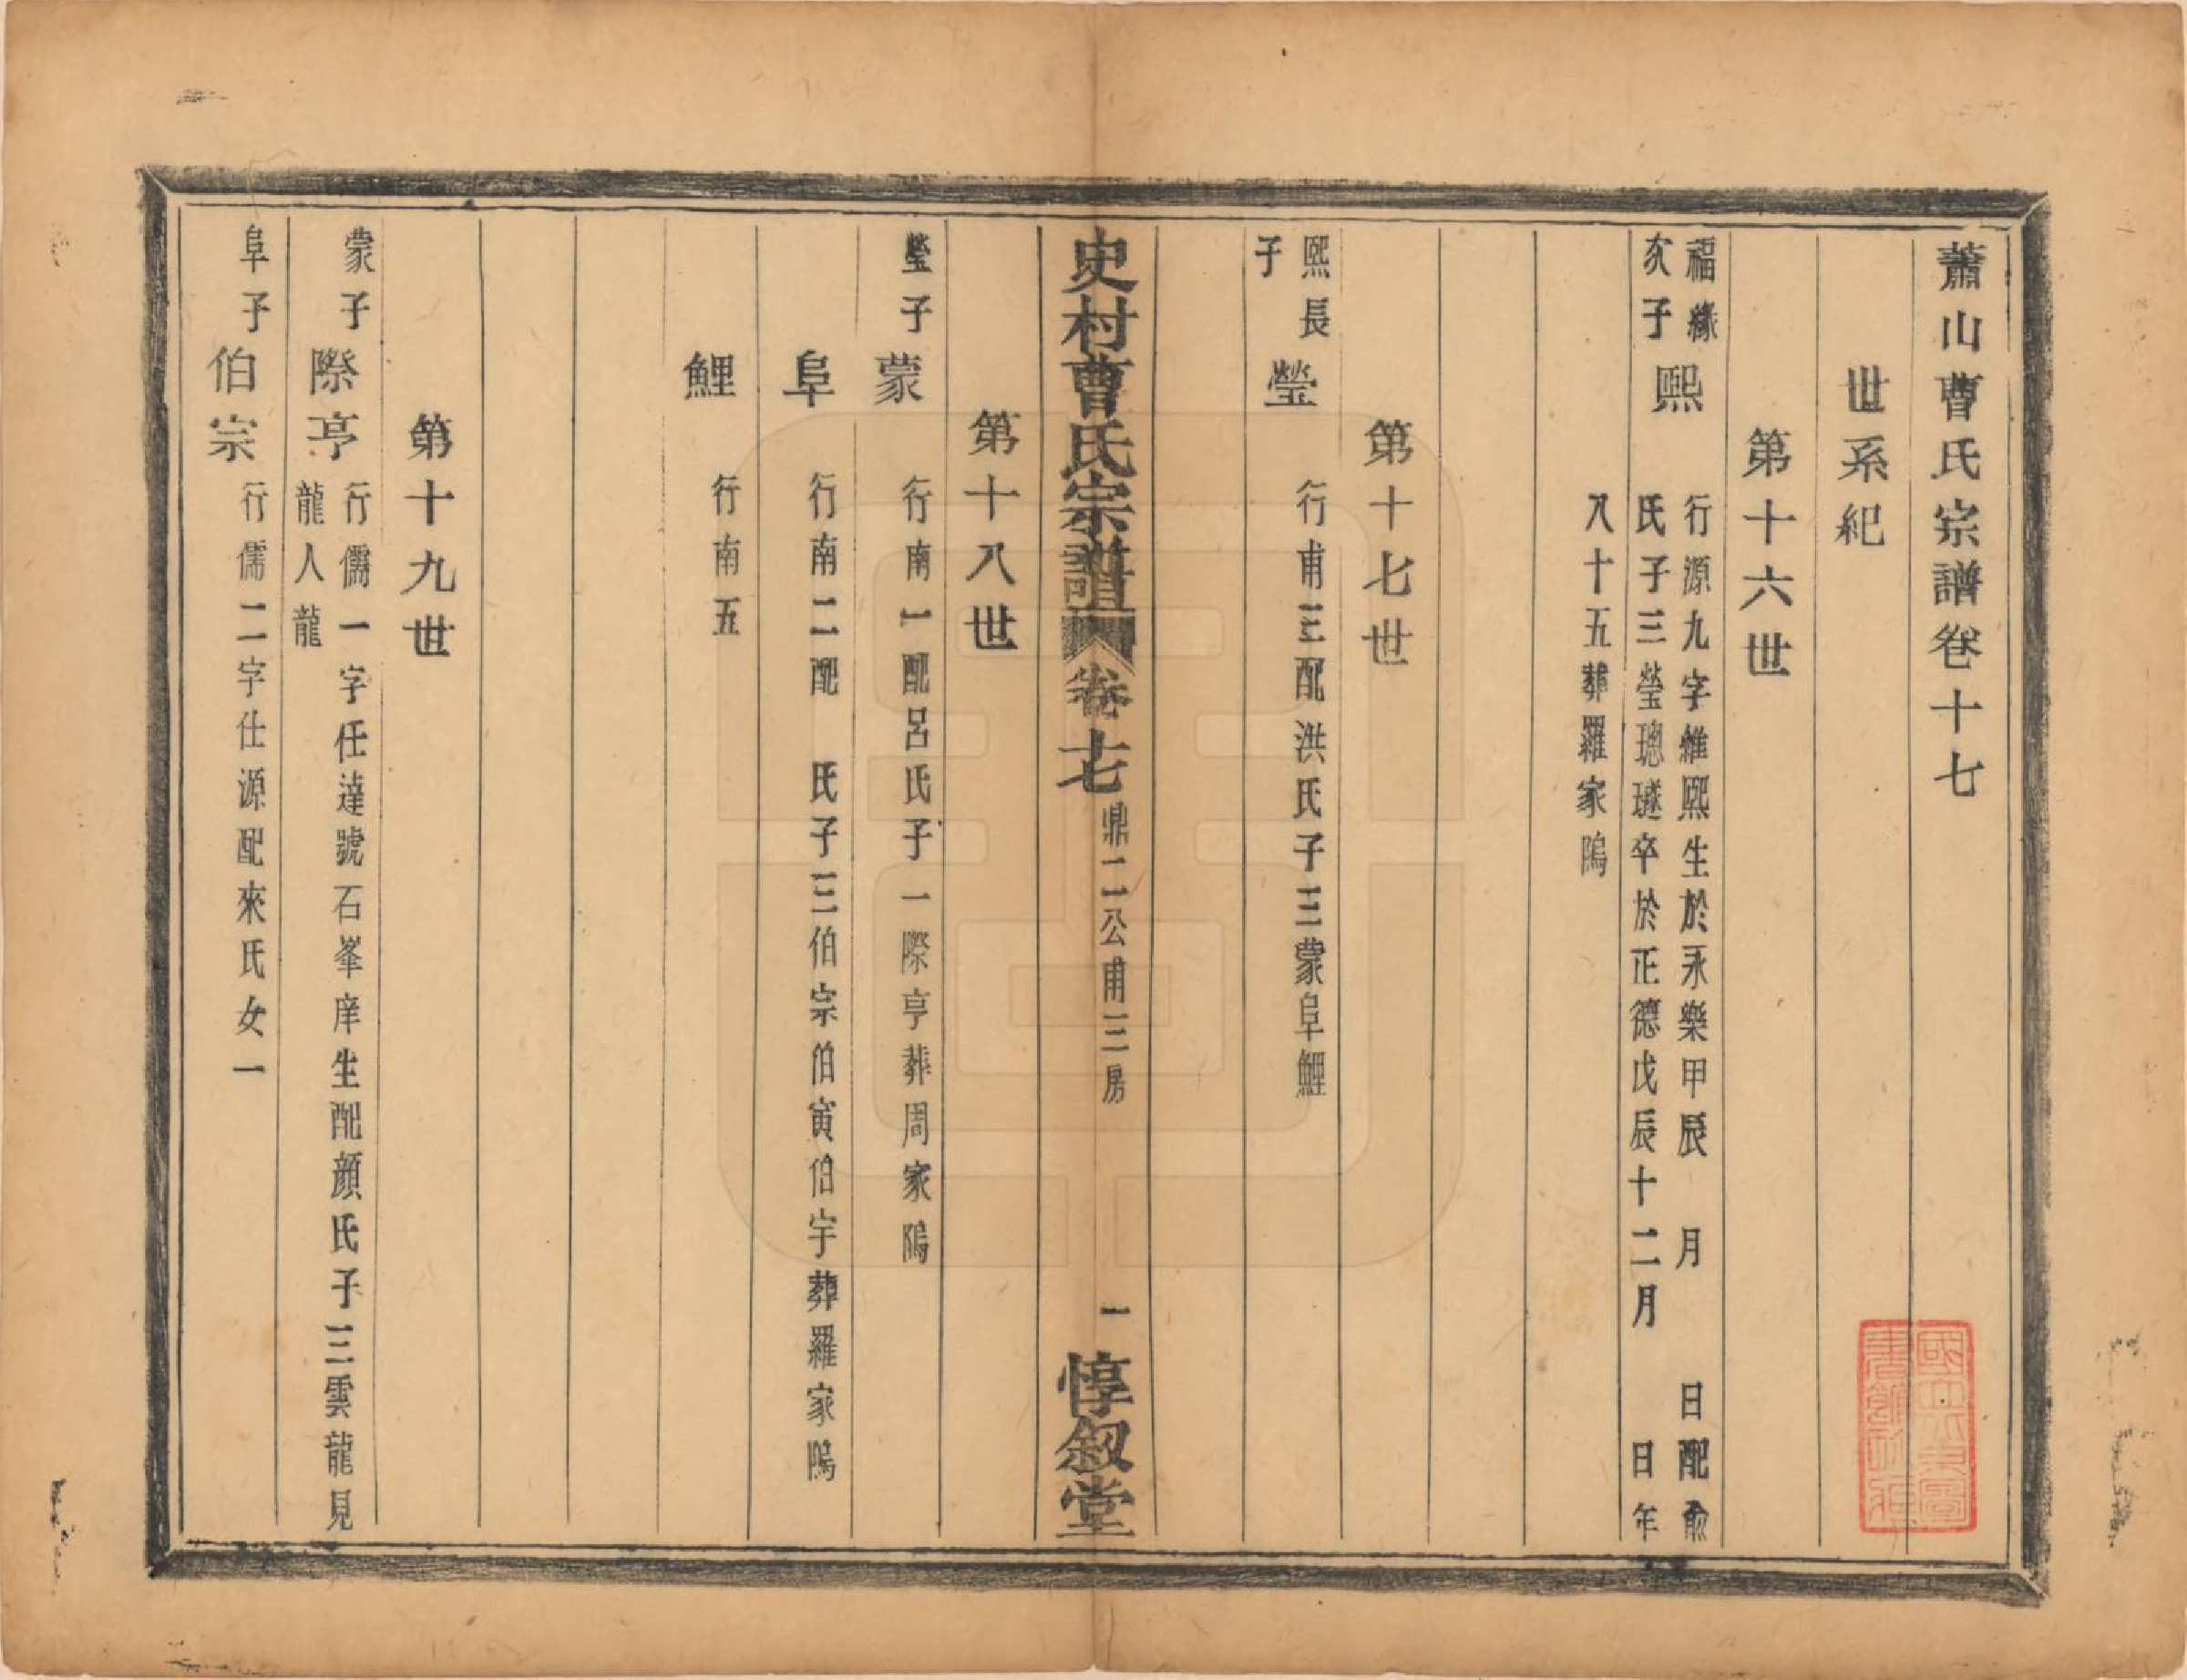 蕭山曹氏宗譜卷十七
世系紀
第十六世
福緣
次子
熙
行源九字維熙生於永樂甲辰　月　日配俞
氏子三瑩璁璲卒於正德戊辰十二月　日年
八十五葬羅家隖
第十七世
熙長
子
瑩
行甫三配洪氏子三蒙阜鯉
史村曹氏宗譜
卷十七
鼎二公甫三房
一
惇叙堂
第十八世
瑩子
蒙
行南一配呂氏子一際亨葬周家隖
阜
行南二配　氏子三伯宗伯寅伯宇葬羅家隖
鯉
行南五
第十九世
蒙子
際亨
行儒一字任達號石峯庠生配顔氏子三雲龍見
龍人龍
阜子
伯宗
行儒二字仕源配來氏女一